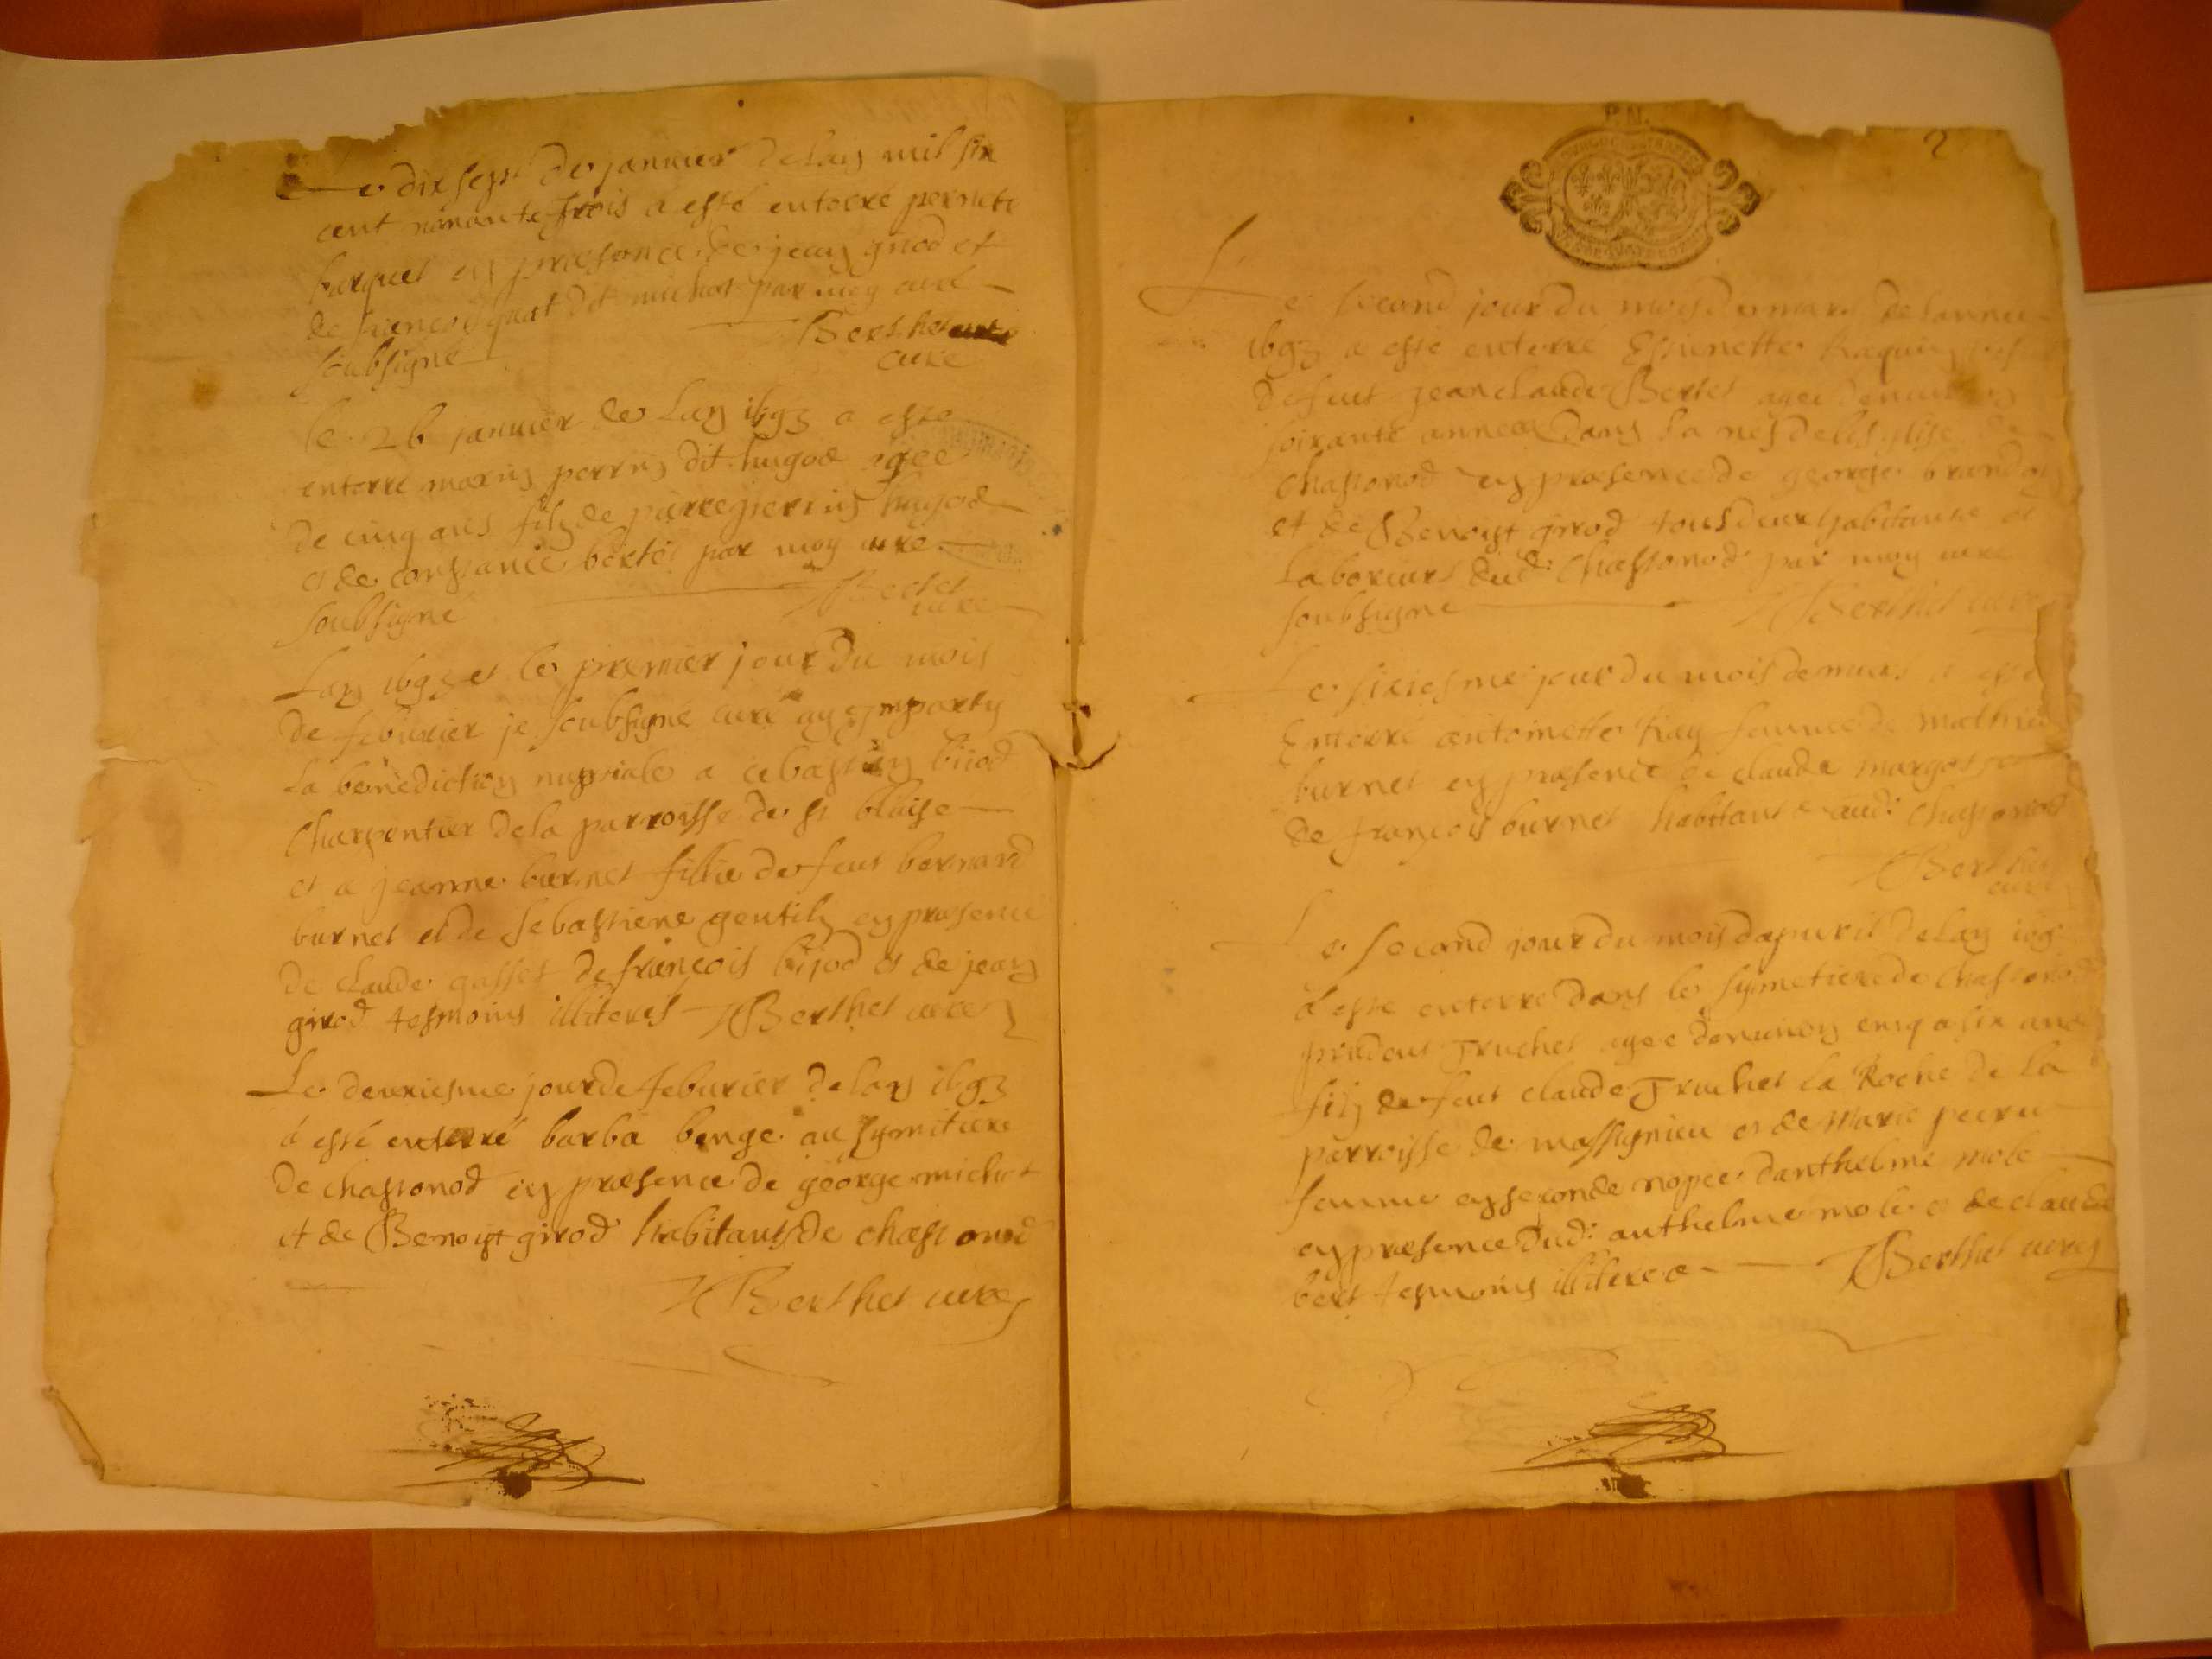 Le dix sept de janvier de lan mil six
cent nonante trois a esté enterré pernete
burquet en præsence de jean girod et
de françois dit michat par moy curé
soubsigné Berthet
curé
le 26 janvier de lan 1693 a esté
enterré marin perrin dit hugod agee
de cinq ans filz de pierre perrin hugod
et de constance bertet par moy curé
soubsigné Bertet
curé
Lan 1693 et le premier jour du mois
de feburier je soubsigné curé ay imparty
la benediction nuptiale a cebastien biiod
charpentier de la parroisse de st blaise
et a jeanne burnet fillie de feut bernard
burnet et de sebastiene gentilz en præsence
de claude gasset de françois bijod et de jean
girod tesmoins illiteres HBerthet curé
Le deuxiesme jour de feburier de lan 1693
a esté enterré barba benge au symitiere
de chastonod en præsence de george michat
et de Benoist girod habitants de chastonod
HBerthet curé
P.N.
2
Le second jour du mois de mars de lannee
1693 a este enterré Estienette
de feut jean claude Bertet agee denuiron
soixante annees dans la nef de lesglise de
chastonod en præsence de george brandon
et de Benoist girod tous deux habitants et
laboreurs dud: Chastonod par moy curé
soubsigné HBerthet curé
Le sixiesme jour du mois de mars a esté
Enterré antoinette Ray femme de mathieu
burnet en præsence de claude margot
de françois burnet habitants aud: chastonod
HBerthet
curé
Le second jour du mois dapuril de lan 169
a este enterré dans le symetiere de chastonod
prudent Truchet agee denuiron cinq a six ans
filz de feut claude Truchet la Roche de la
parroisse de massignieu et de marie
femme en seconde nopce danthelme mole
en præsence dud: anthelme mole et de claude
bert tesmoins illiteres HBerthet curé